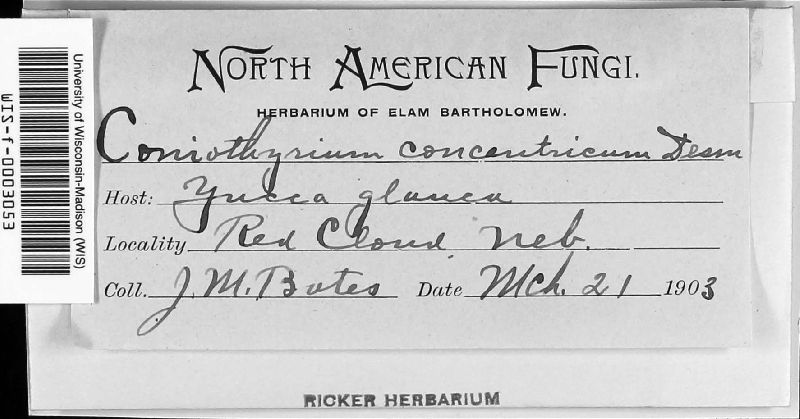 NORTH AMERICAN FUNGI.
HERBARIUM OF ELAM BARTHOLOMEW.
Coniothyrium concentricum Desm
Host: Yucca glauca
Locality Red Cloud, Neb.
Coll. J. M. Bates Date Mch. 21 1903
RICKER HERBARIUM
University of Wisconsin-Madison (WIS)
WIS-f-0003053